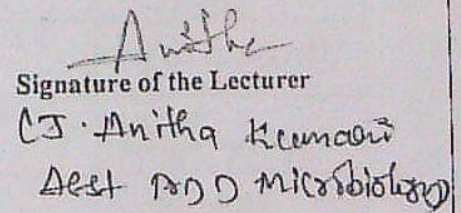 Anitha
Signature of the Lecturer
CJ. Anitha Kumari
Microbiology